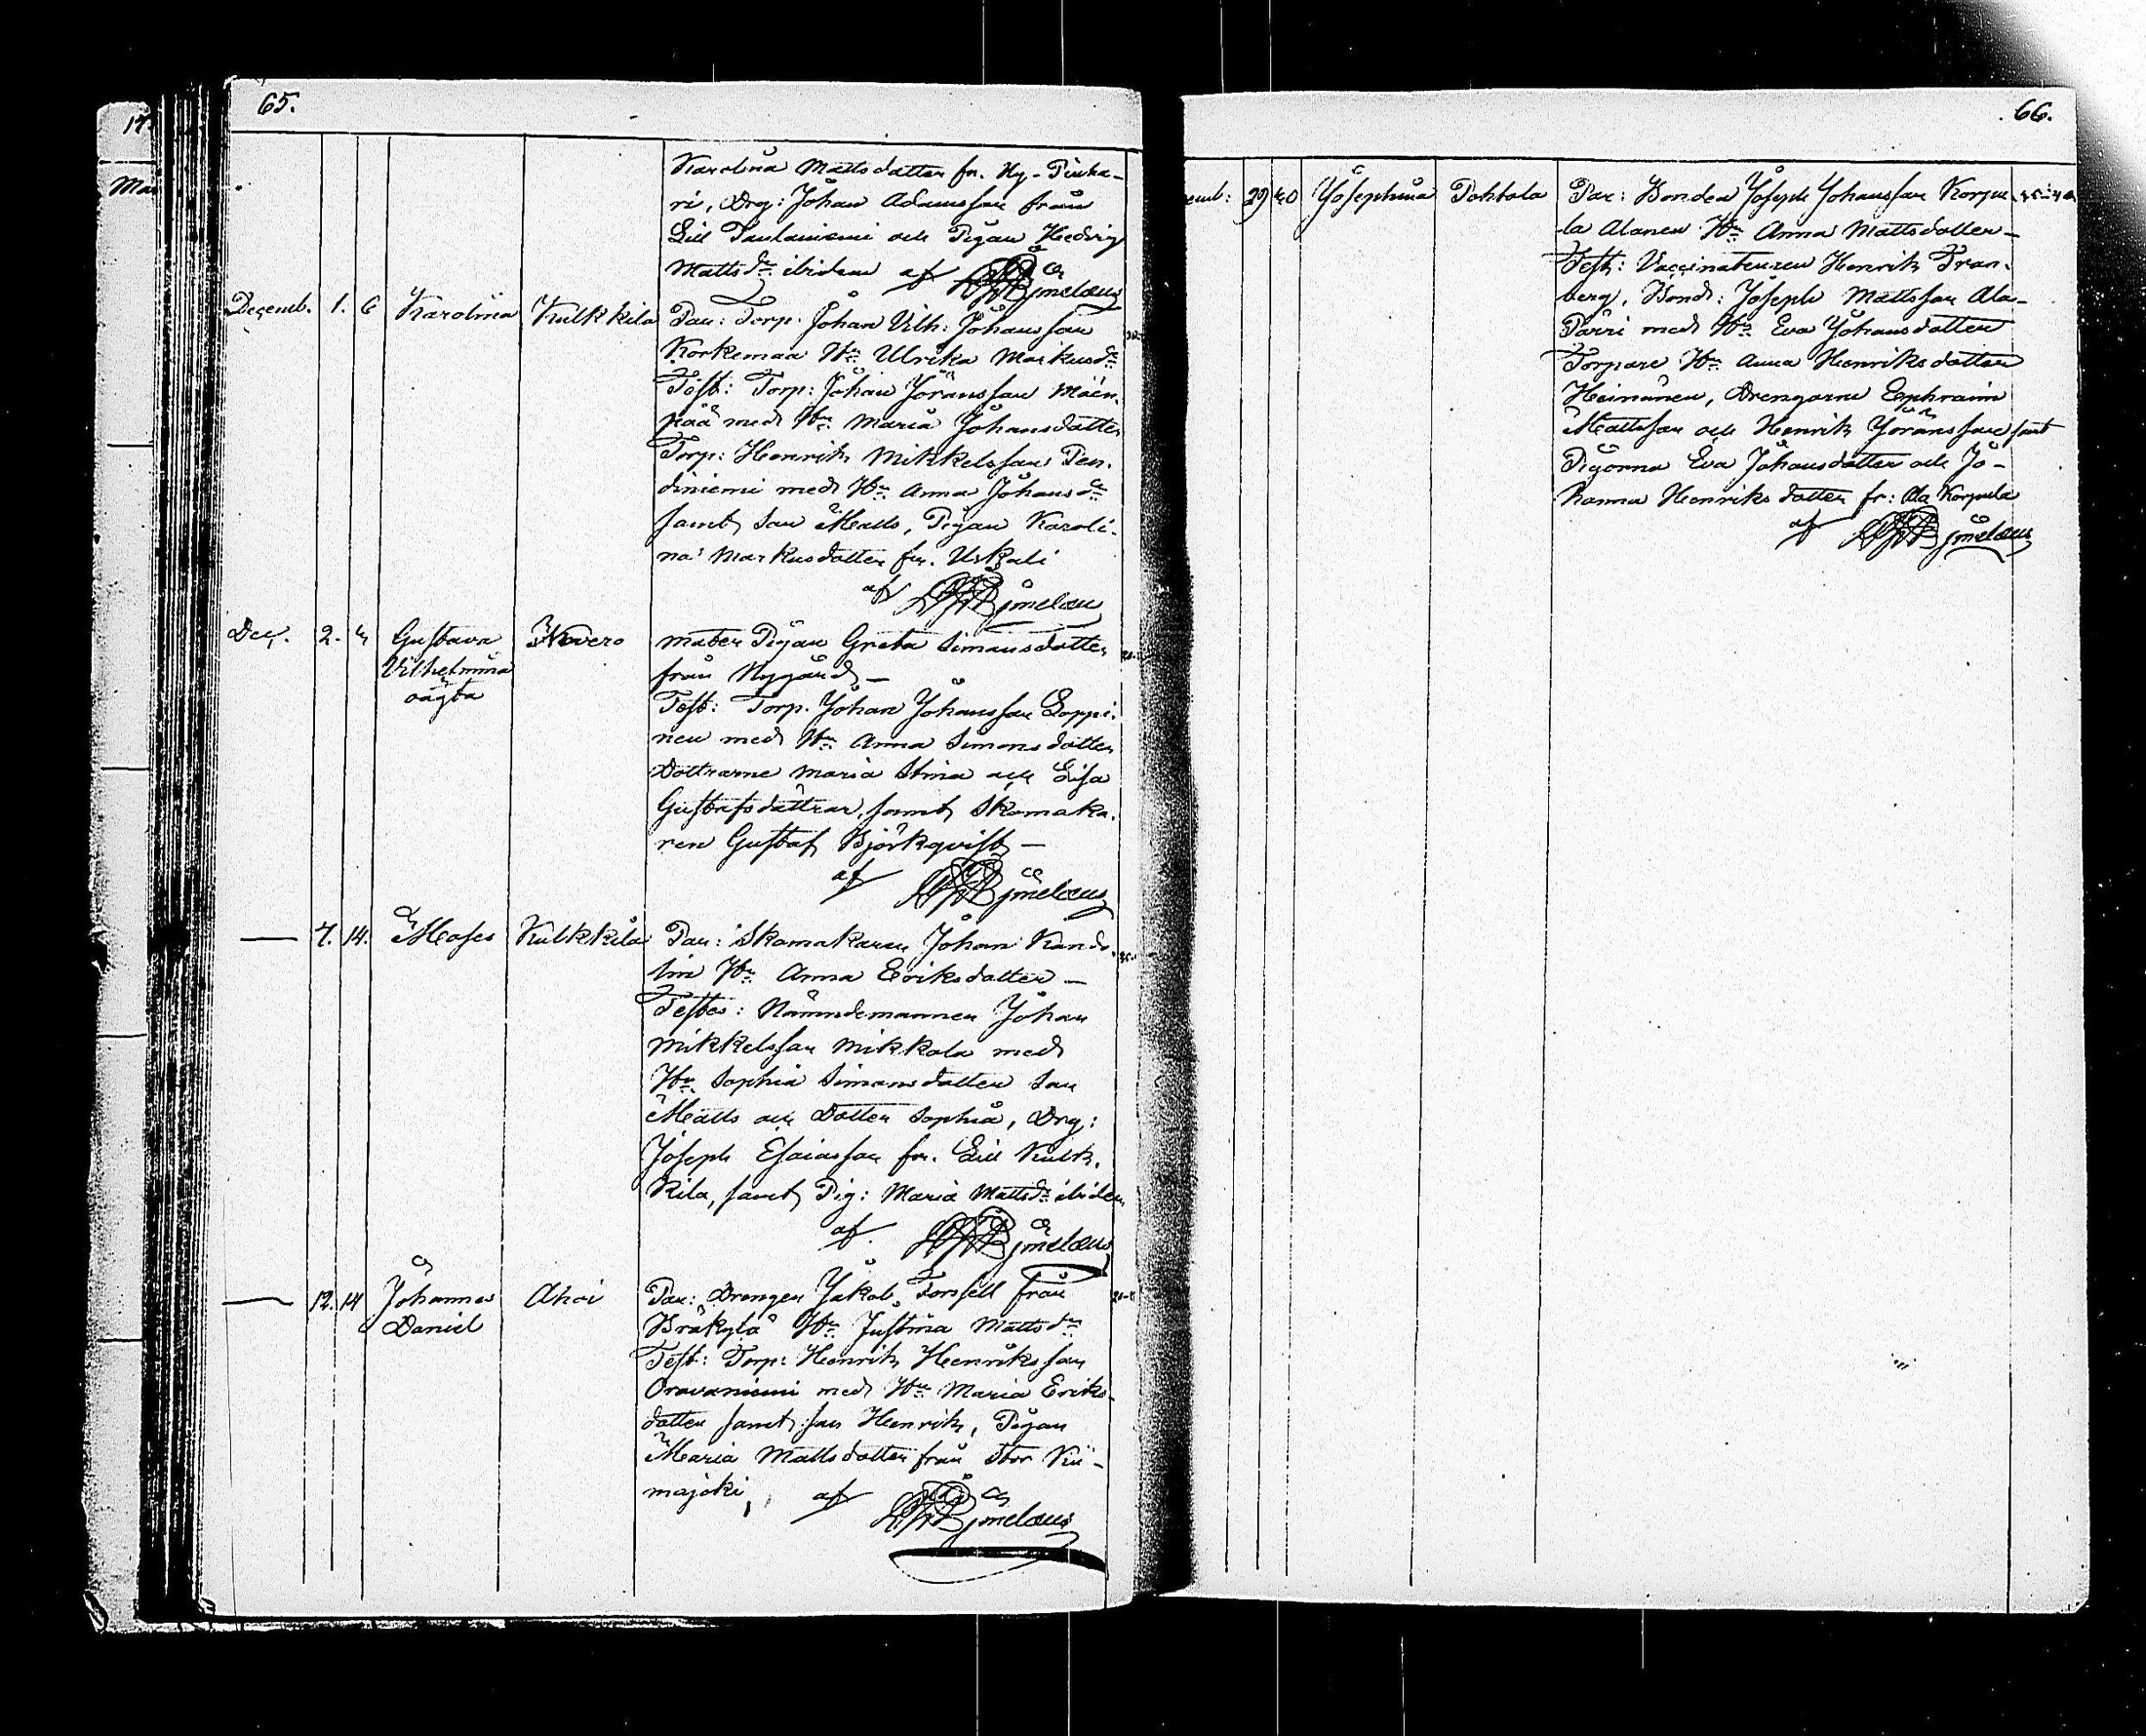 65.
Karolina Mattsdotter fr. Ny-Pinka-
ri, Drg: Johan Adamsson från
Lill Paulaniemi och Pigan Hedvig
Mattsdr ibidem af
Decemb. 1. 6 Karolina Kulkkila Par: Torp: Johan Vilh: Johansson
Korkemaa Hu Ulrika Markusdr
Test: Torp: Johan Jöransson Mäen-
pää med Hu Maria Johansdotter
Torp: Henrik Mikkelsson Pen-
diniemi med Hu Anna Johansdr
samt son Matts, Pigan Karoli-
na Markusdotter fr. Uskali
af
Dec. 2. 4 Gustava Novero mater Pigan Greta Simonsdotter
Vilhelmina från Nygård –
oägta Test: Torp. Johan Johansson Loppi-
nen med Hu Anna Simonsdotter
Döttrarne Maria Stina och Lisa
Gustafsdöttrar, samt Skomaka-
ren Gustaf Björkqvist –
af
— 7. 14. Moses Kulkkila Par: Skomakaren Johan Kando-
lin Hu Anna Eriksdotter –
Testes: Nämndemannen Johan
Mikkelsson Mikkola med
Hu Sophia Simonsdotter son
Matts och Dotter Sophia, Drg:
Joseph Esaiasson fr. Lill Kulk-
kila, samt Pig: Maria Mattsdr ibidem
af
— 12. 14 Johannes Ahoi Par: Drengen Jakob Forssell från
Daniel Bråkylä Hu Justina Mattsdr
Test: Torp: Henrik Henriksson
Oravaniemi med Hu Maria Eriks-
dotter samt son Henrik, Pigan
Maria Mattsdotter från Stor Kii-
majoki, af
66.
emb: 29 30 Josephina Pohtola Par: Bonden Joseph Johansson Korpe-
la Alanen Hu Anna Mattsdotter –
Test: Vaccinateuren Henrik Fran-
berg, Bond: Joseph Mattsson Ala-
Pärri med Hu Eva Johansdotter
Torpare Hu Anna Henriksdotter
Heinänen, Drengarne Ephraim
Mattsson och Henrik Jöransson samt
Pigorna Eva Johansdotter och Jo-
hanna Henriksdotter fr: Ala Korpela
af